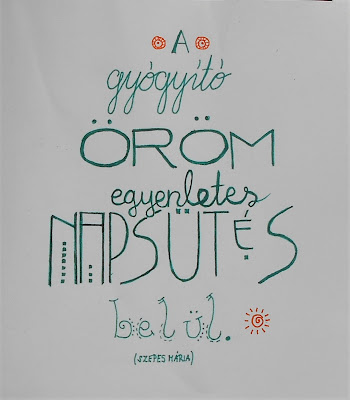 A
gyógyító
ÖRÖM
egyenletes
NAPSÜTÉS
belül.
(SZEPES MÁRIA)